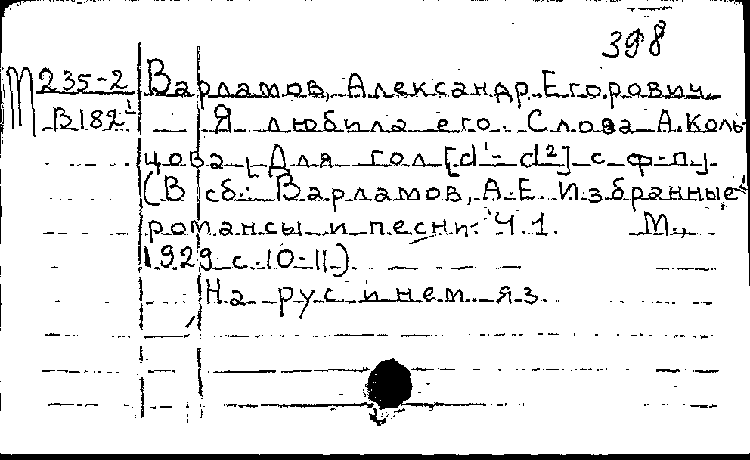 398
М 235-2 Варламов, Александр Егорович
В182¹ Я любила его. Слова А. Коль-
цова [Для гол [d¹-d²] с ф-п.]
(В сб.: Варламов, А.Е. Избранные
романсы и песни. Ч.1. М.,
1929 с.10-11)
На рус и нем яз.